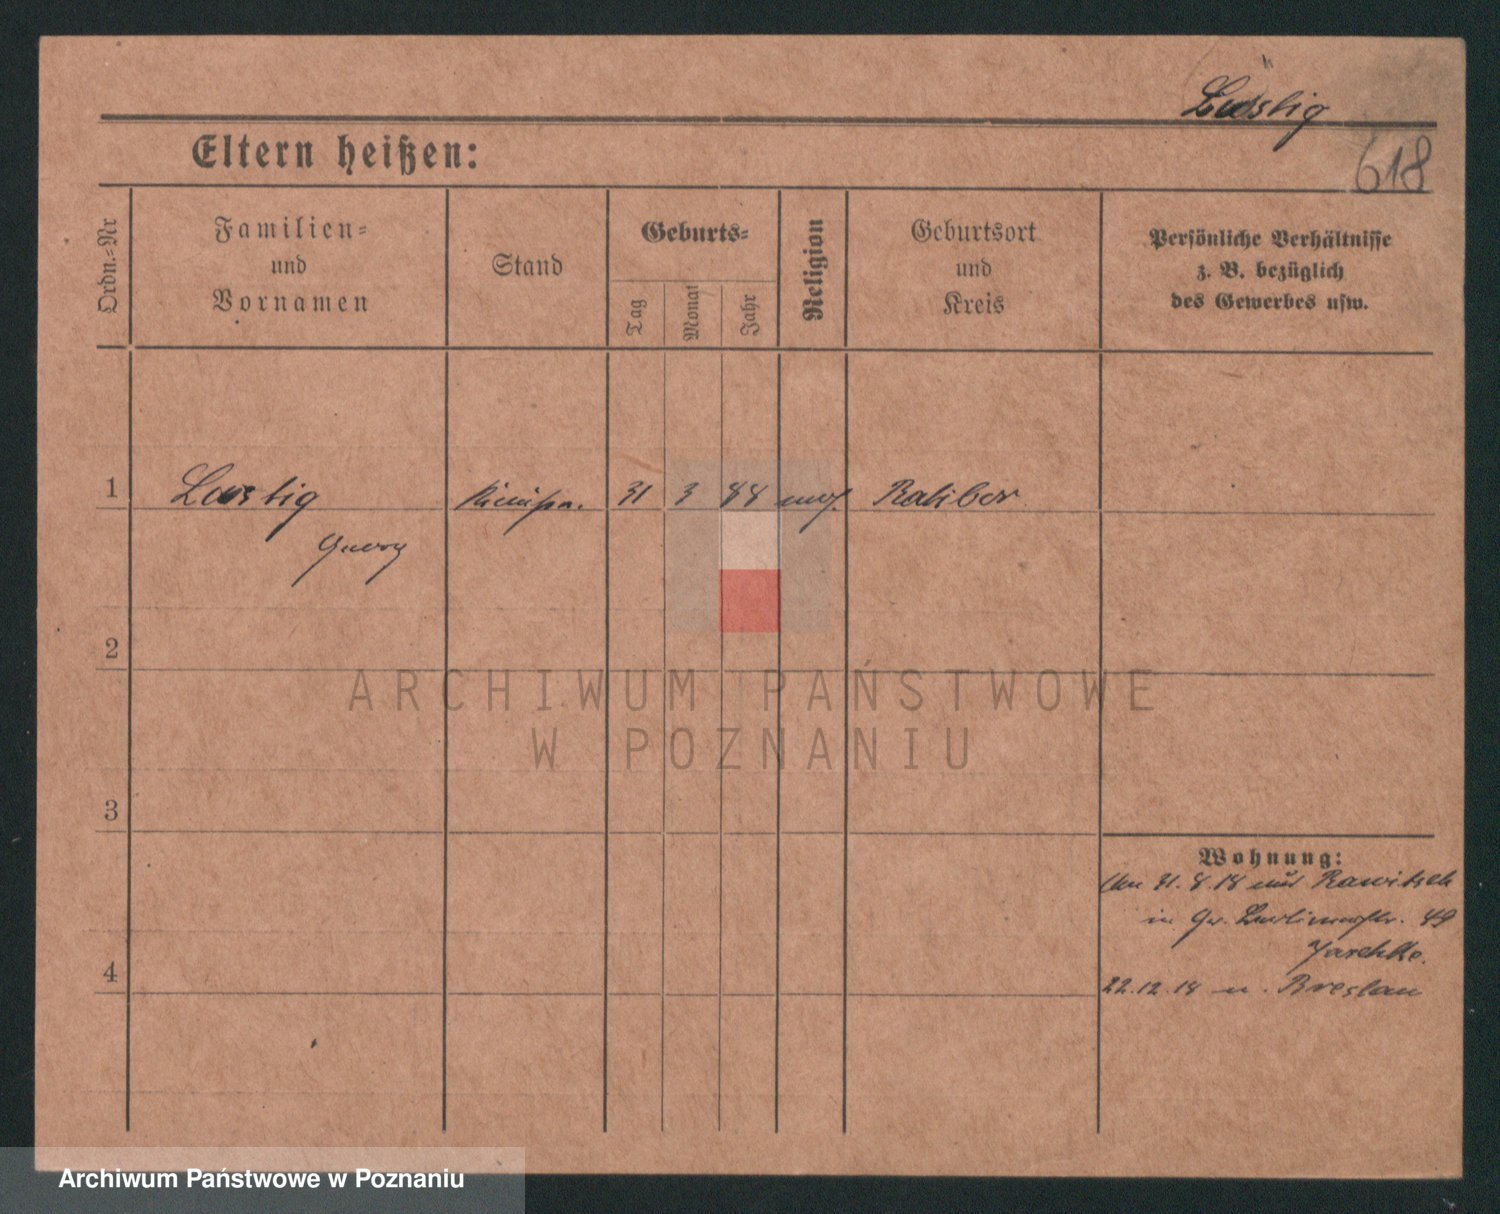 Lustig
Eltern heißen:
618
Ordn.-Nr
Familien-
und
Vornamen
Stand
Geburts-
Tag
Monat
Jahr
Religion
Geburtsort
und
Kreis
Persönliche Verhältnisse
z. B. bezüglich
des Gewerbes usw.
1
Lustig
Georg
31
3
88
Ratibor
2
ARCHIWUM PAŃSTWOWE
W POZNANIU
3
Wohnung:
31. 8. 18 Rawitsch
in Gr. 49
22.12.18 n. Breslau
4
Archiwum Państwowe w Poznaniu